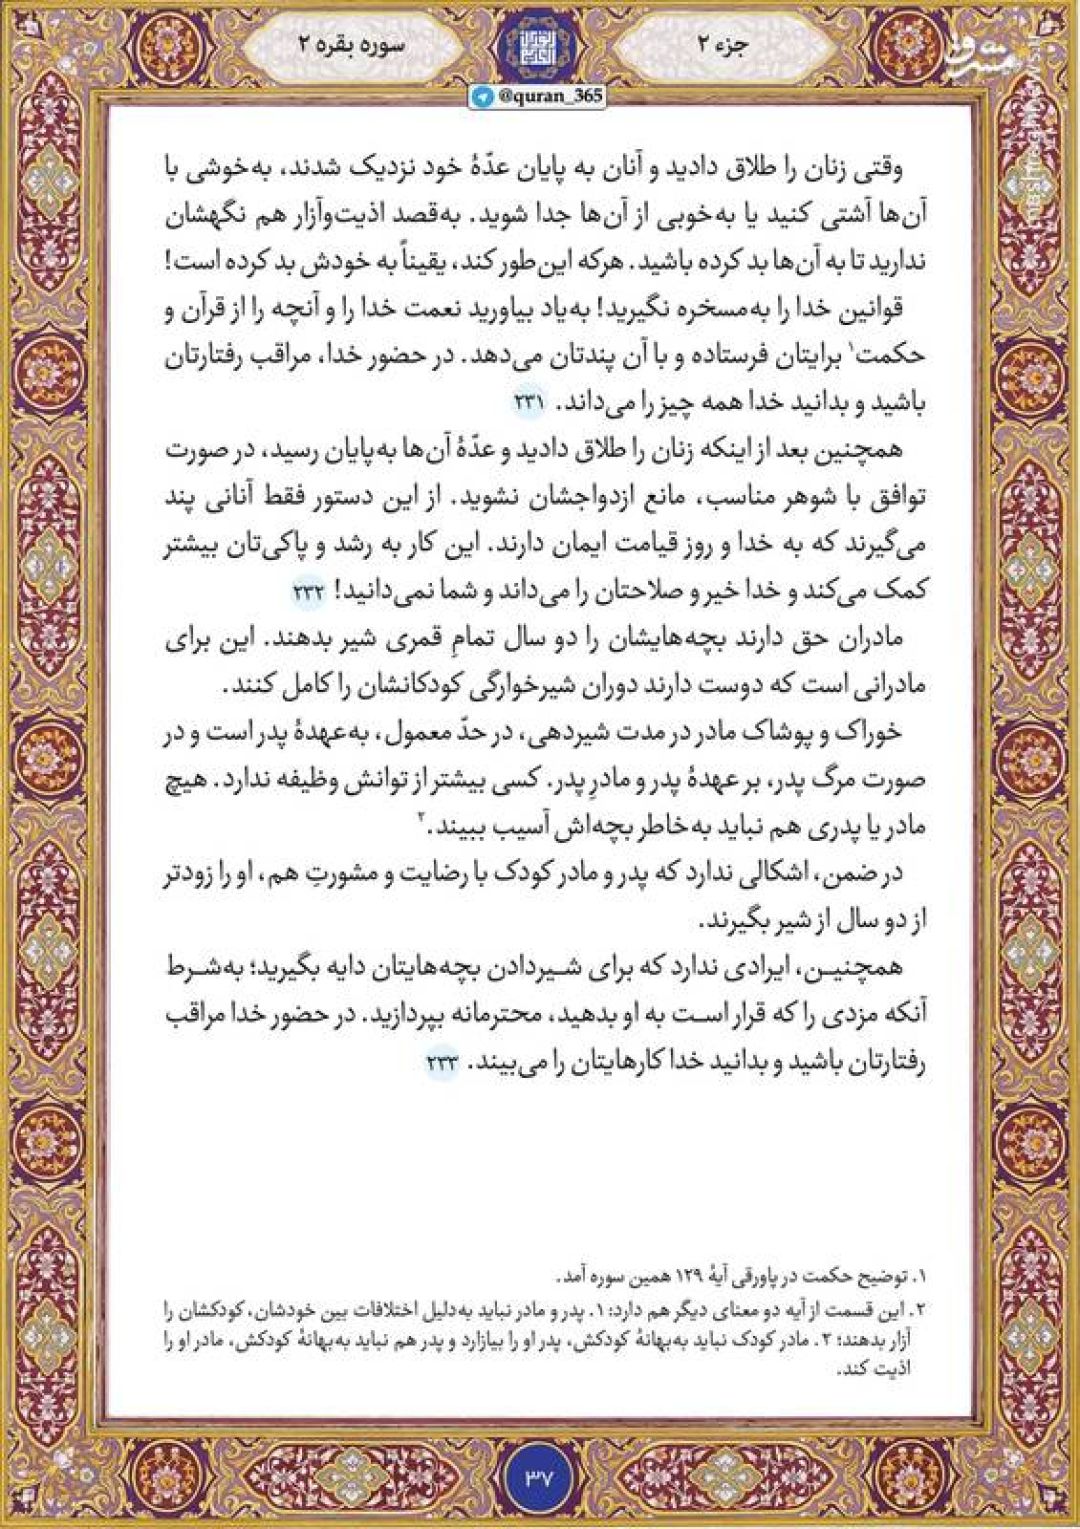 جزء ۲
سوره بقره ۲
@quran_365
مشرق
وقتی زنان را طلاق دادید و آنان به پایان عدّهٔ خود نزدیک شدند، به‌خوشی با
آن‌ها آشتی کنید یا به‌خوبی از آن‌ها جدا شوید. به‌قصد اذیت‌وآزار هم نگهشان
ندارید تا به آن‌ها بد کرده باشید. هرکه این‌طور کند، یقیناً به خودش بد کرده است!
قوانین خدا را به‌مسخره نگیرید! به‌یاد بیاورید نعمت خدا را و آنچه را از قرآن و
حکمت۱ برایتان فرستاده و با آن پندتان می‌دهد. در حضور خدا، مراقب رفتارتان
باشید و بدانید خدا همه چیز را می‌داند. ۲۳۱
همچنین بعد از اینکه زنان را طلاق دادید و عدّهٔ آن‌ها به‌پایان رسید، در صورت
توافق با شوهر مناسب، مانع ازدواجشان نشوید. از این دستور فقط آنانی پند
می‌گیرند که به خدا و روز قیامت ایمان دارند. این کار به رشد و پاکی‌تان بیشتر
کمک می‌کند و خدا خیر و صلاحتان را می‌داند و شما نمی‌دانید! ۲۳۲
مادران حق دارند بچه‌هایشان را دو سال تمامِ قمری شیر بدهند. این برای
مادرانی است که دوست دارند دوران شیرخوارگی کودکانشان را کامل کنند.
خوراک و پوشاک مادر در مدت شیردهی، در حدّ معمول، به‌عهدهٔ پدر است و در
صورت مرگ پدر، بر عهدهٔ پدر و مادرِ پدر. کسی بیشتر از توانش وظیفه ندارد. هیچ
مادر یا پدری هم نباید به‌خاطر بچه‌اش آسیب ببیند.۲
در ضمن، اشکالی ندارد که پدر و مادر کودک با رضایت و مشورتِ هم، او را زودتر
از دو سال از شیر بگیرند.
همچنیـن، ایرادی ندارد که برای شـیردادن بچه‌هایتان دایه بگیرید؛ به‌شـرط
آنکه مزدی را که قرار اسـت به او بدهید، محترمانه بپردازید. در حضور خدا مراقب
رفتارتان باشید و بدانید خدا کارهایتان را می‌بیند. ۲۳۳
۱. توضیح حکمت در پاورقی آیهٔ ۱۲۹ همین سوره آمد.
۲. این قسمت از آیه دو معنای دیگر هم دارد: ۱. پدر و مادر نباید به‌دلیل اختلافات بین خودشان، کودکشان را
آزار بدهند؛ ۲. مادر کودک نباید به‌بهانهٔ کودکش، پدر او را بیازارد و پدر هم نباید به‌بهانهٔ کودکش، مادر او را
اذیت کند.
۳۷